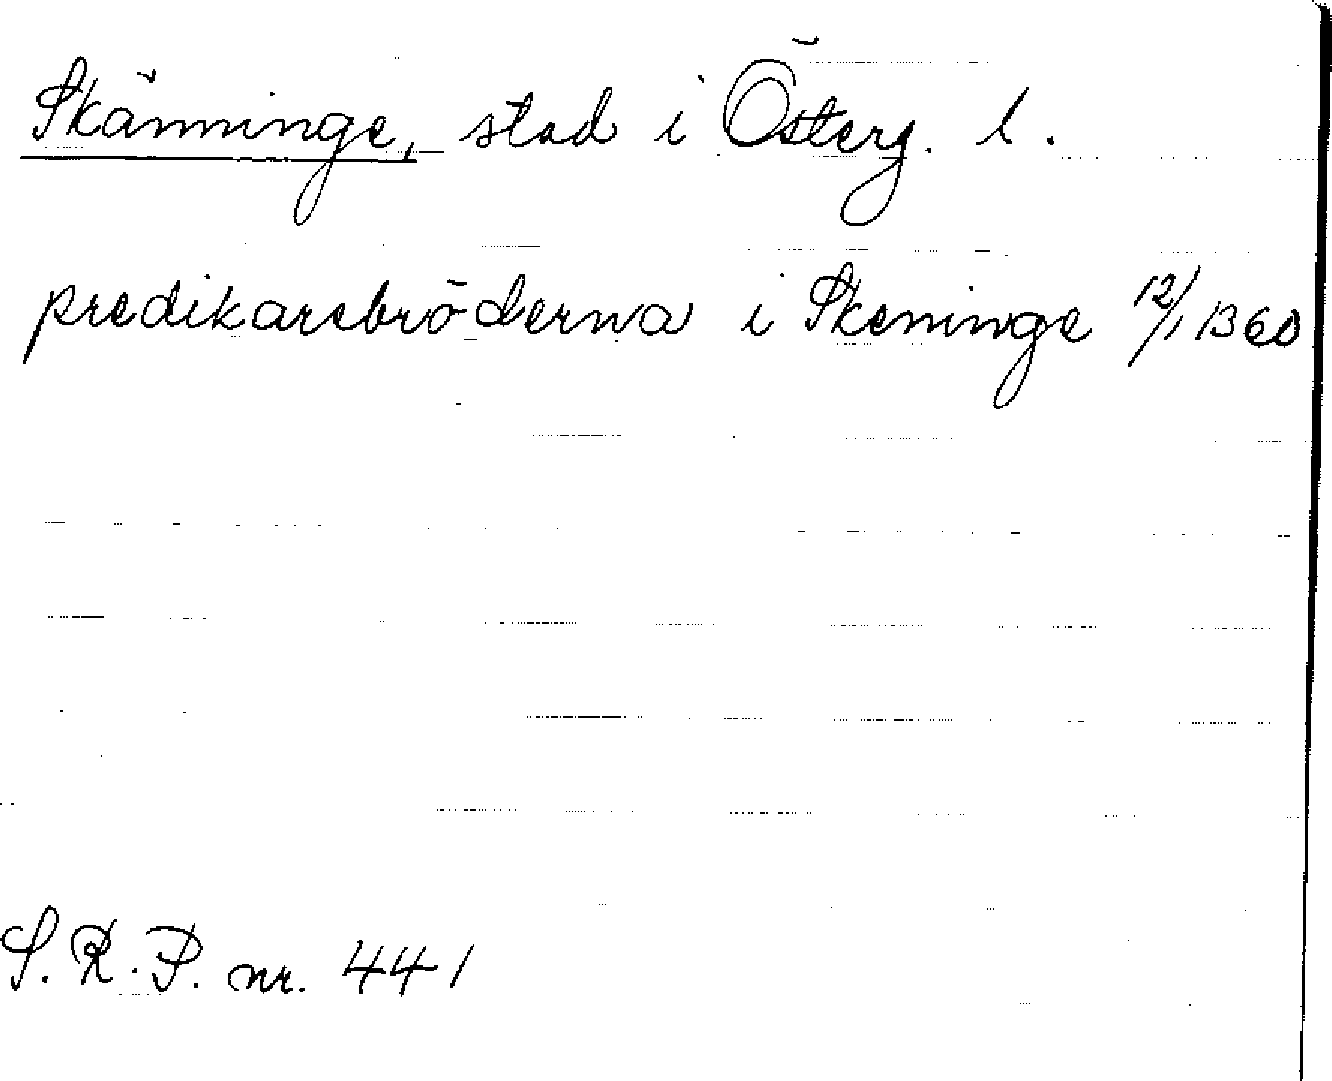 Skänninge, stad i Österg. l.
predikarebröderna i Skeninge 12/1 1360
S.R.P. nr. 441